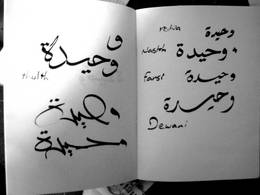 و
وحيدة
thulth
وحيدة
وحيدة
وحيدة
Naskh وحيدة
Farsi وحيدة
وحيدة
Dewani